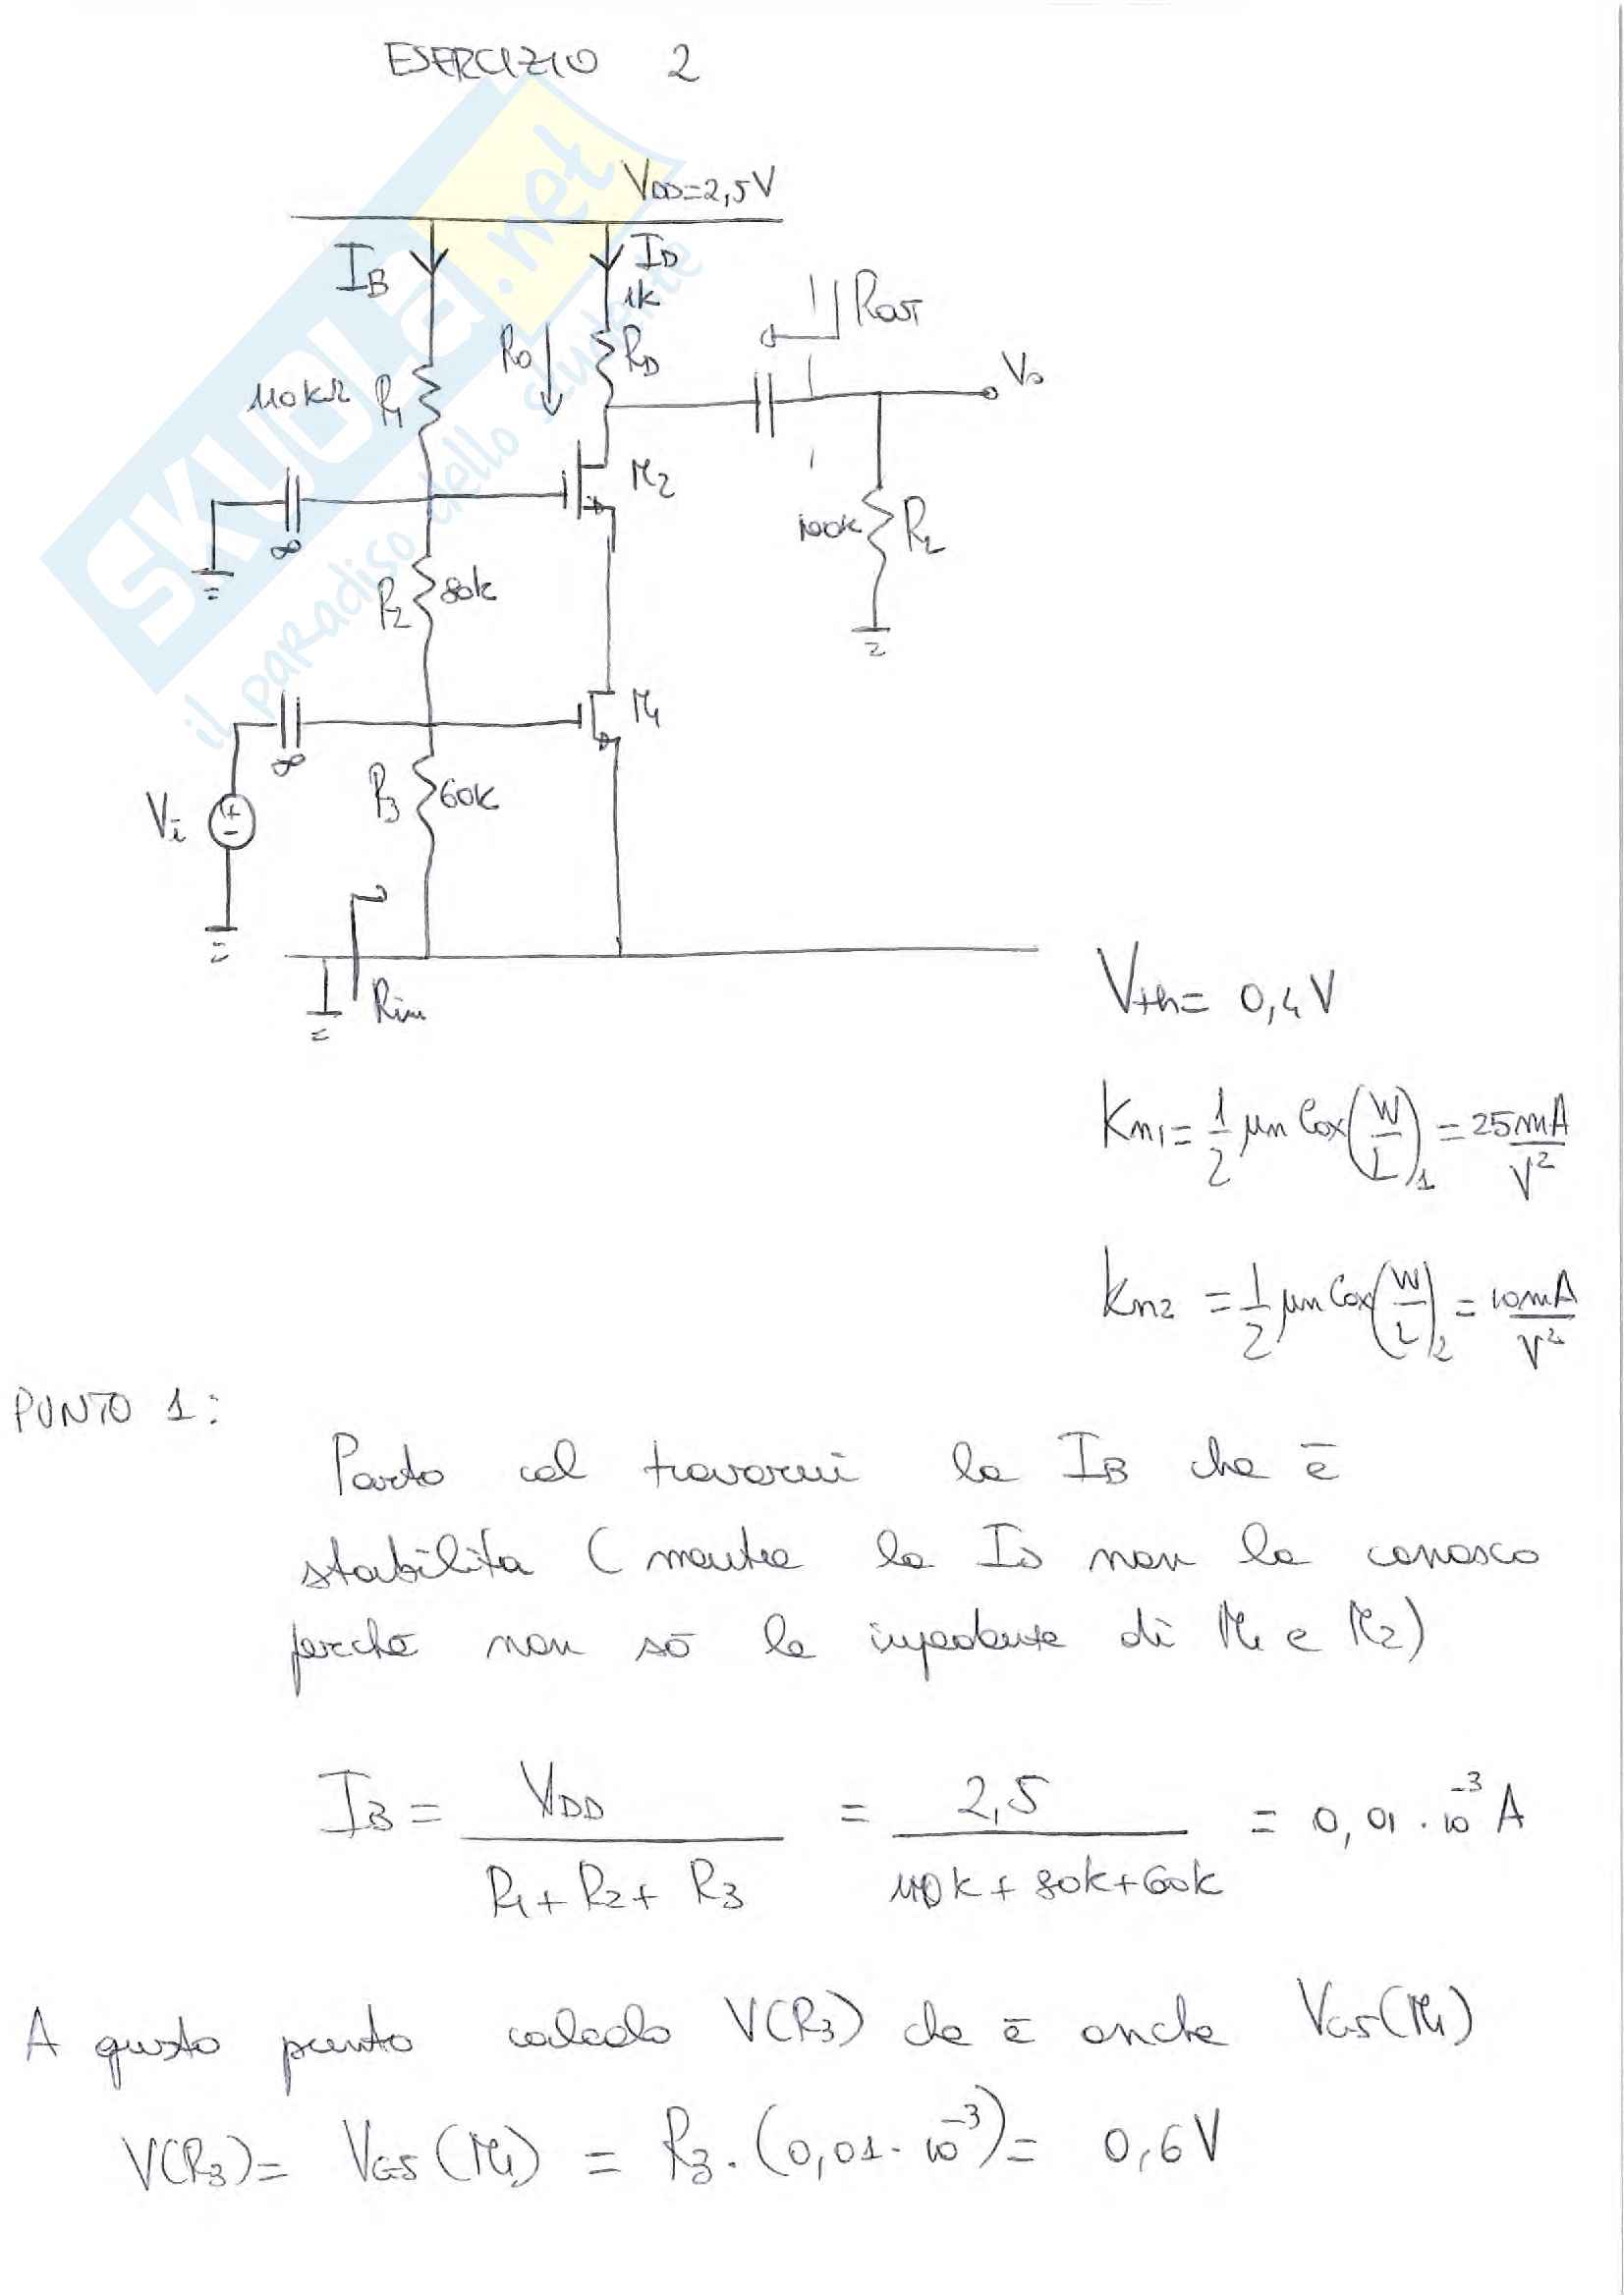 ESERCIZIO 2
VDD=2,5V
IB
ID
1k
RD
RO
ROUT
Vo
110kΩ R1
M2
∞
R2 80k
100k RL
M1
∞
Vi
R3 60k
Rin
Vth= 0,4V
Kn1= 1/2 μn Cox(W/L)1 = 25mA/V²
Kn2 = 1/2 μn Cox(W/L)2 = 10mA/V²
PUNTO 1:
Parto col trovarmi la IB che è
stabilita ( mentre la ID non la conosco
perchè non sò le inpedenze di M1 e M2)
IB = VDD / R1+R2+R3 = 2,5 / 110k+80k+60k = 0,01·10⁻³ A
A questo punto calcolo V(R3) che è anche VGS(M1)
V(R3)= VGS (M1) = R3·(0,01·10⁻³)= 0,6V
SKUOLA.net
il paradiso dello studente